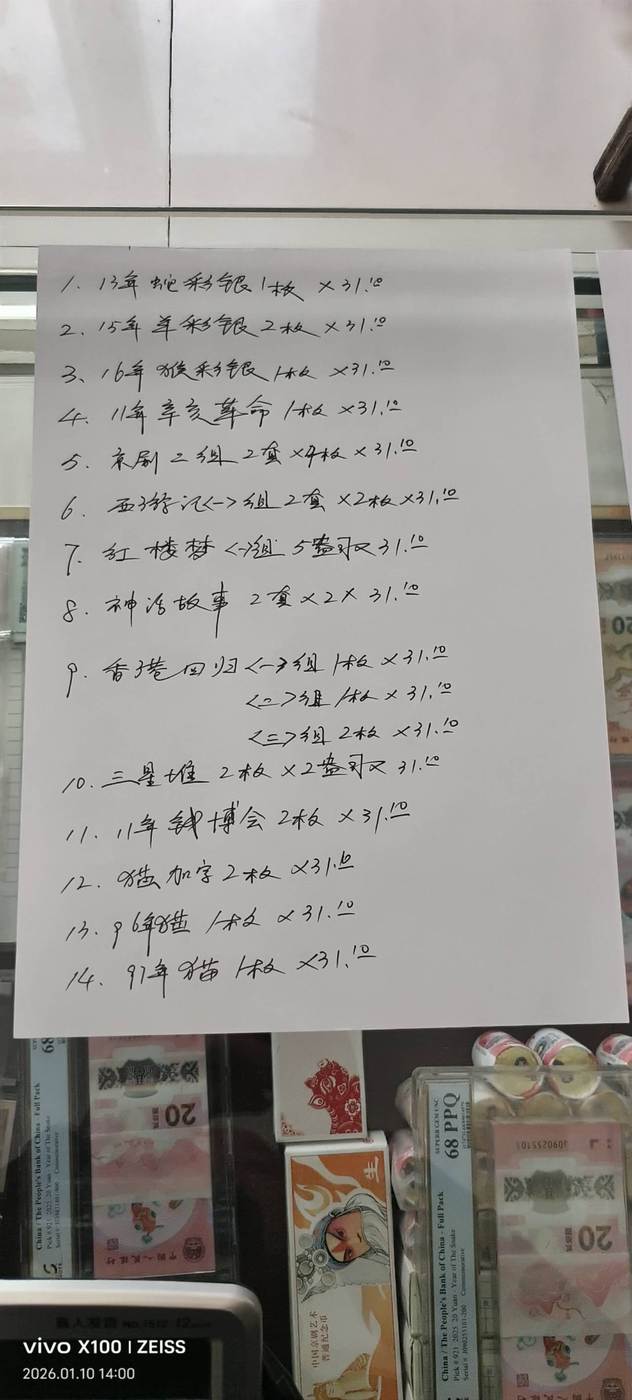 1. 13年蛇彩银1枚 ×31.10
2. 15年羊彩银2枚 ×31.10
3. 16年猴彩银1枚 ×31.10
4. 11年辛亥革命1枚 ×31.10
5. 京剧二组 2套×4枚×31.10
6. 西游记<一>组 2套×2枚×31.10
7. 红楼梦<一>组 5盎司×31.10
8. 神话故事 2套×2× 31.10
9. 香港回归<一>组 1枚×31.10
<二>组 1枚×31.10
<三>组 2枚×31.10
10. 三星堆 2枚×2盎司×31.10
11. 11年钱博会 2枚×31.10
12. 猫加字 2枚×31.10
13. 96年猫 1枚×31.10
14. 97年猫 1枚×31.10
20
China / The People's Bank of China - Full Pack
中国京剧艺术
普通纪念币
生
SUPERB GEM UNC
68 PPQ
China / The People's Bank of China - Full Pack
J090255101
20
vivo X100 | ZEISS
2026.01.10 14:00